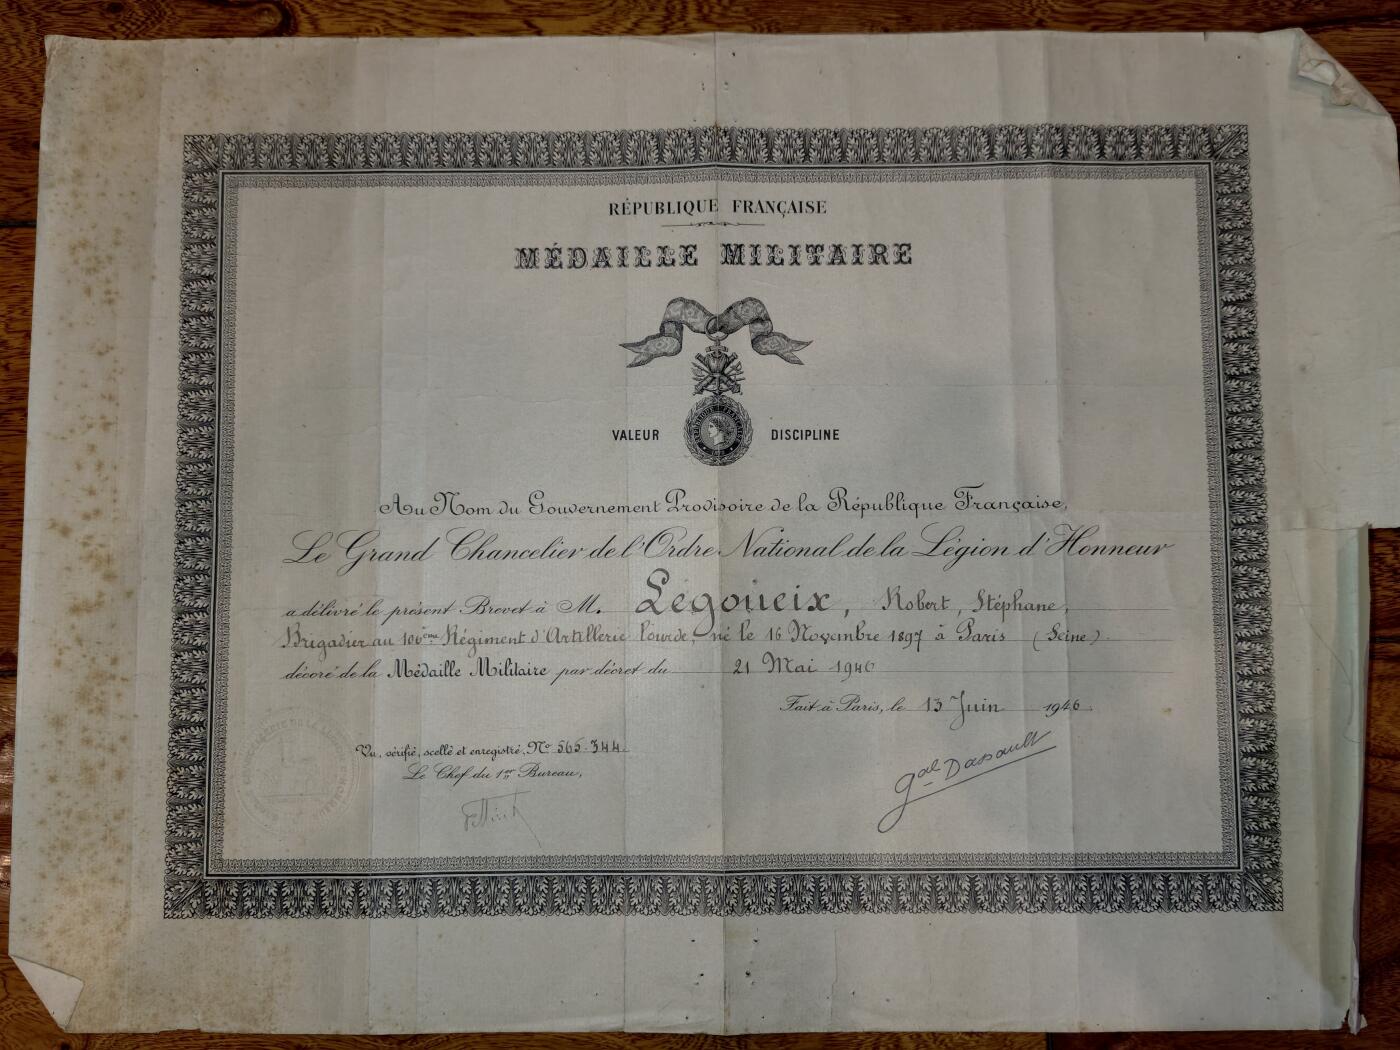 RÉPUBLIQUE FRANÇAISE
MÉDAILLE MILITAIRE
VALEUR DISCIPLINE
Au Nom du Gouvernement Provisoire de la République Française,
Le Grand Chancelier de l'Ordre National de la Légion d'Honneur
a délivré le présent Brevet à M. Legoueix, Robert, Stéphane,
Brigadier au 106ème Régiment d'Artillerie lourde, né le 16 Novembre 1897 à Paris (Seine).
décoré de la Médaille Militaire par décret du 21 Mai 1946
Fait à Paris, le 13 Juin 1946.
Vu, vérifié, scellé et enregistré, No 565.344.
Le Chef du 1er Bureau,
gal Dassault